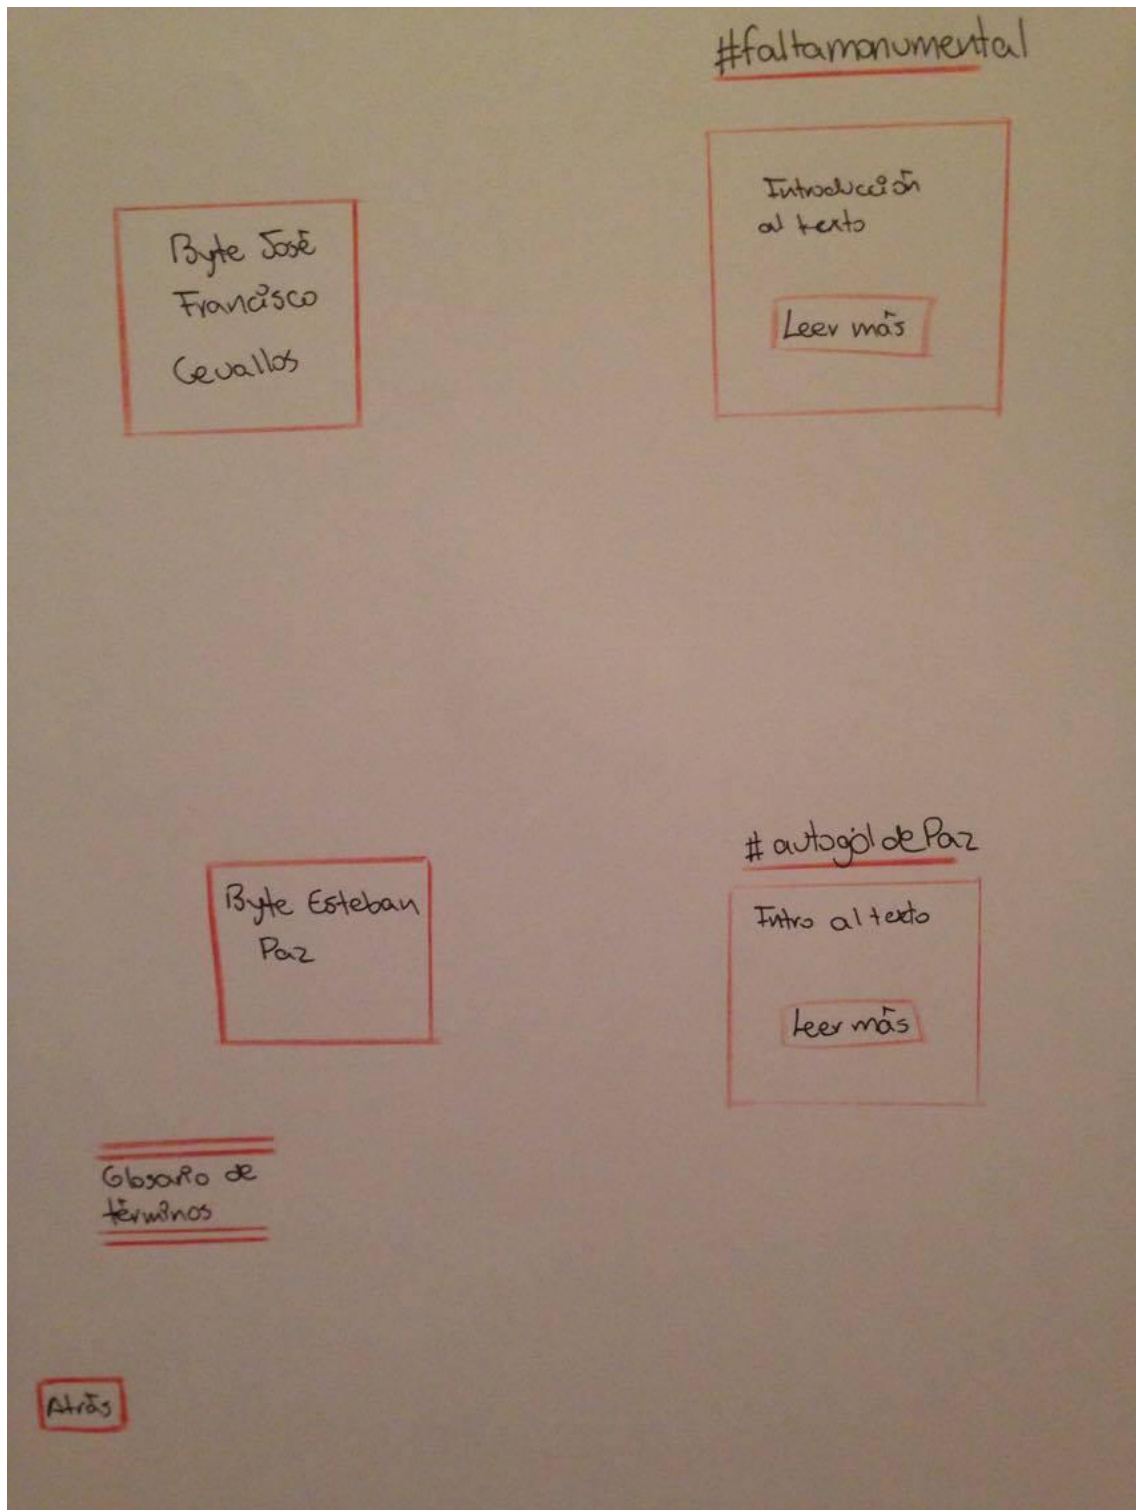 #faltamonumental
Byte José
Francisco
Cevallos
Introducción
al texto
Leer más
#autogoldePaz
Byte Esteban
Paz
Intro al texto
Leer más
Glosario de
términos
Atrás